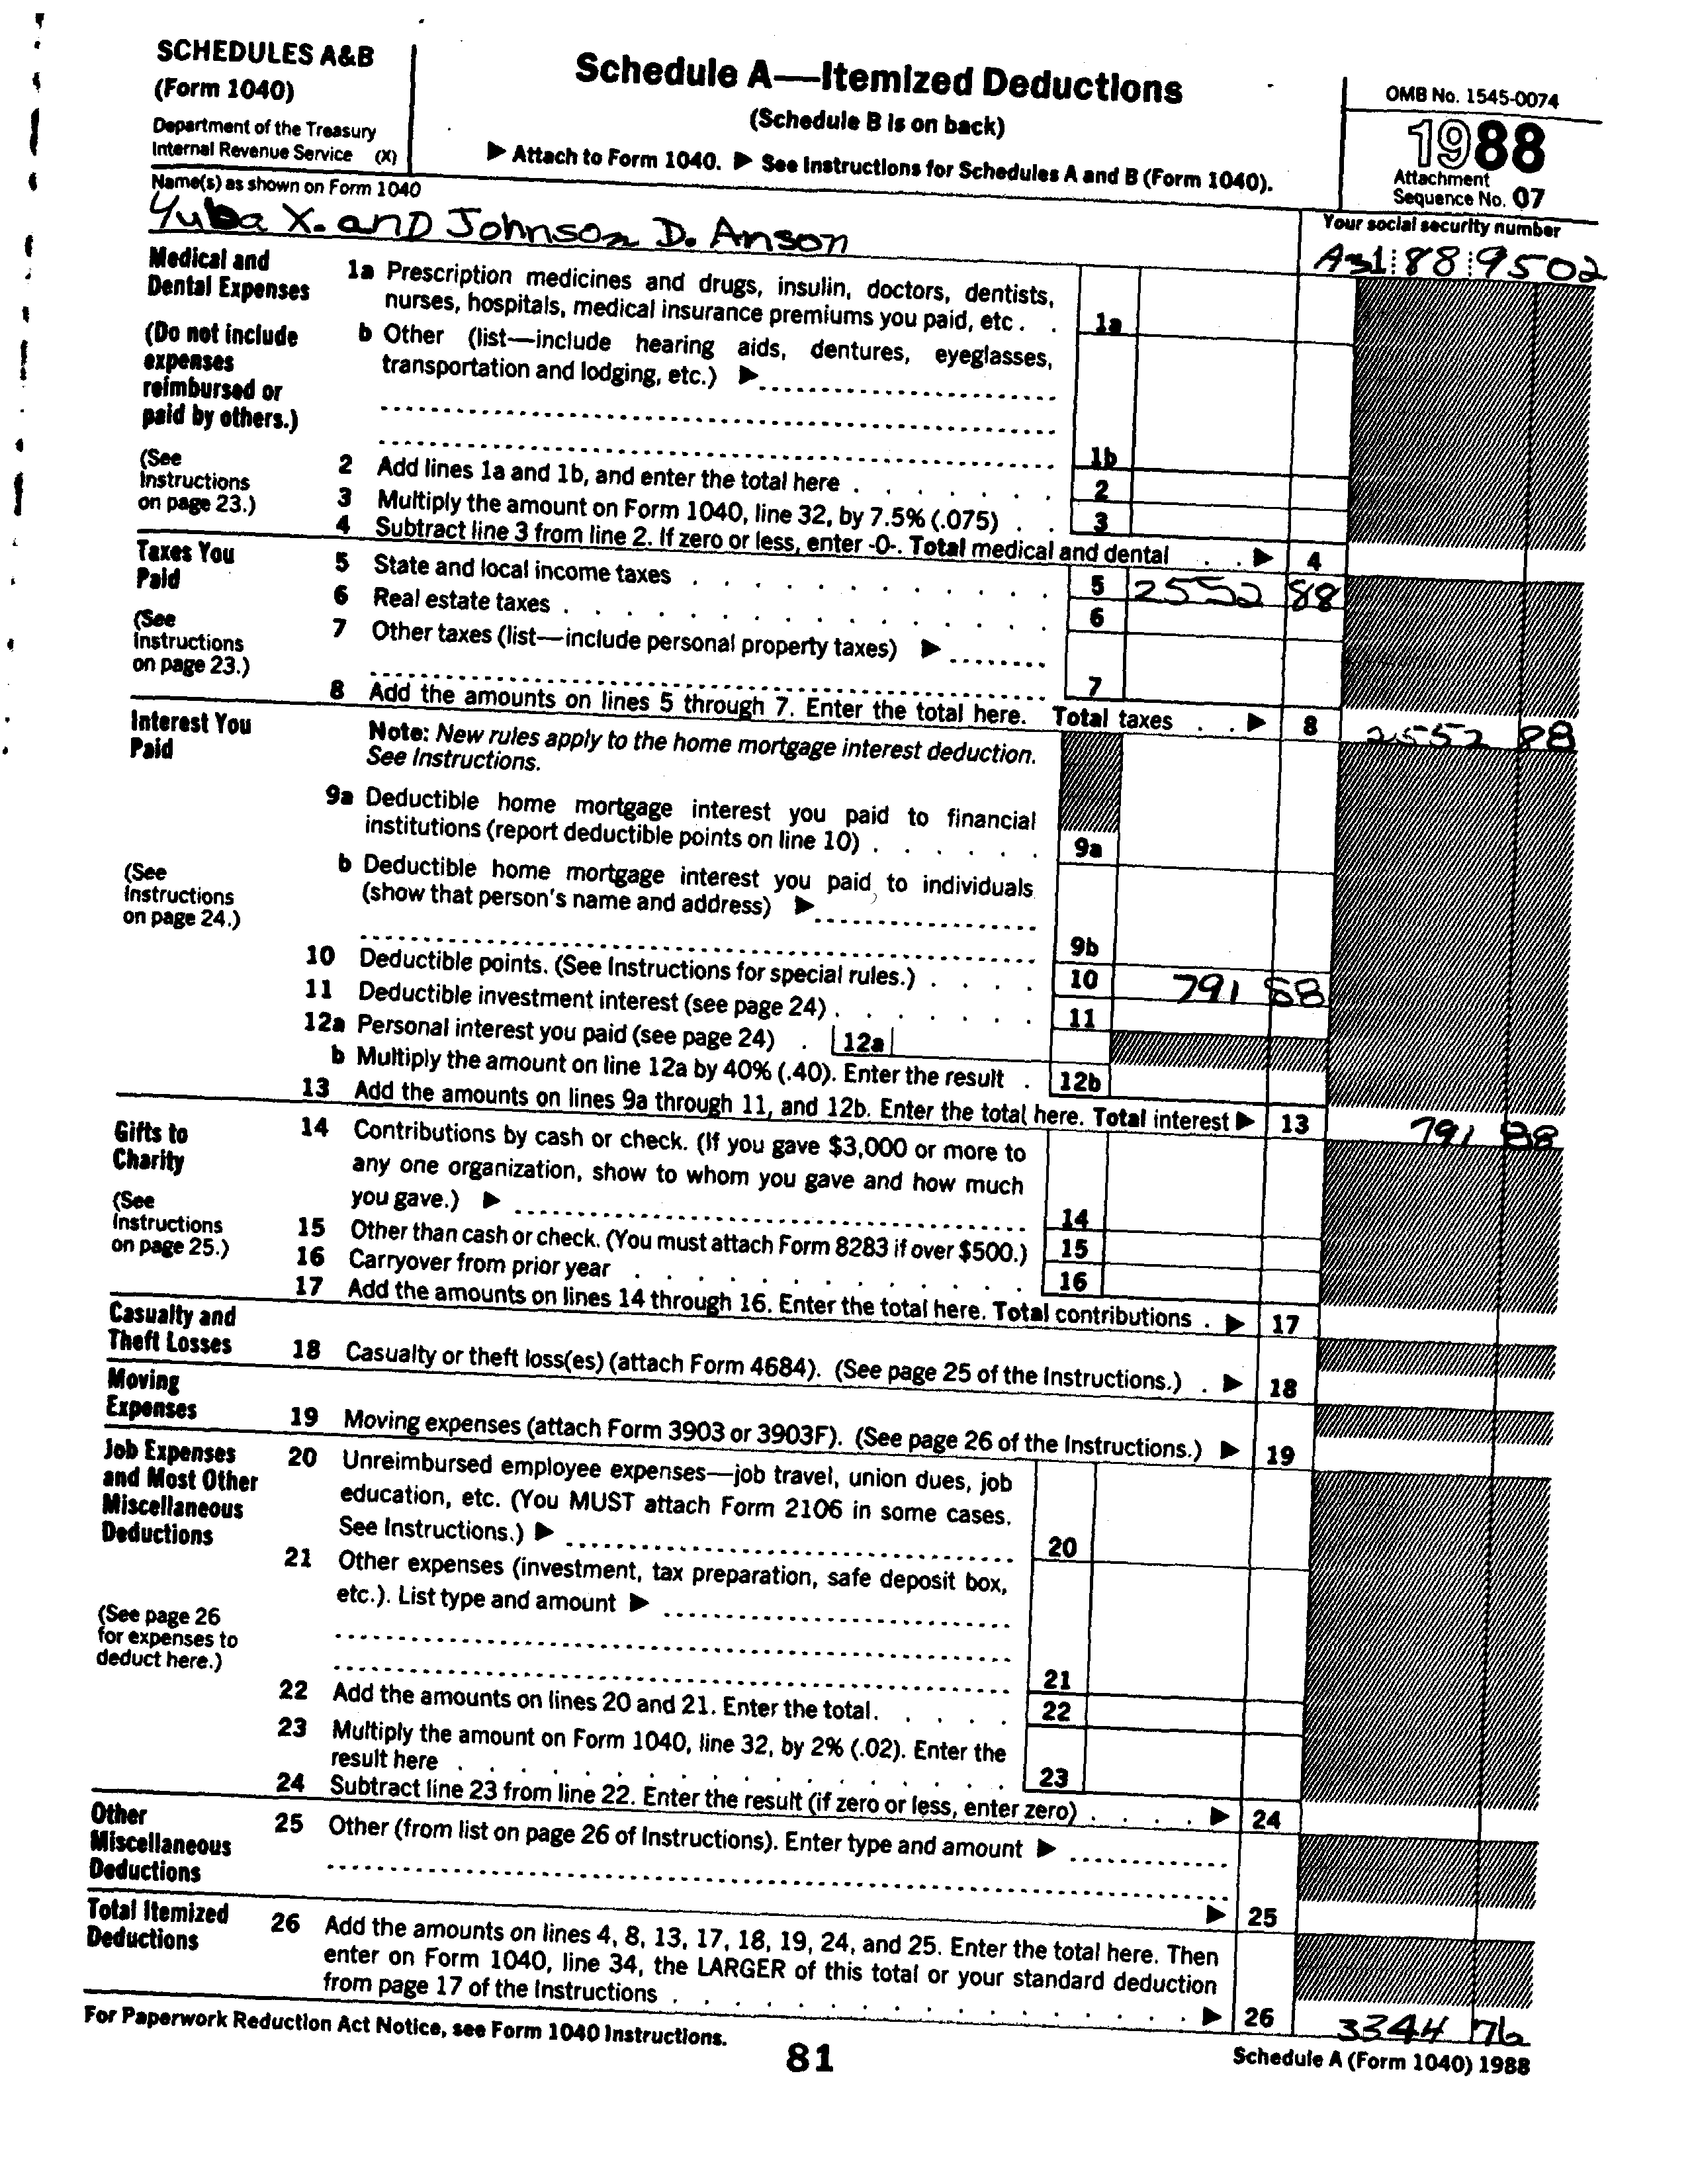 SCHEDULES A&B
(Form 1040)
Department of the Treasury
Internal Revenue Service (X)
Schedule A—Itemized Deductions
(Schedule B is on back)
▶ Attach to Form 1040. ▶ See Instructions for Schedules A and B (Form 1040).
OMB No. 1545-0074
1988
Attachment
Sequence No. 07
Name(s) as shown on Form 1040
Yuba X. and Johnson D. Anson
Your social security number
A31 88 9502
Medical and
Dental Expenses
(Do not include
expenses
reimbursed or
paid by others.)
(See
Instructions
on page 23.)
1a Prescription medicines and drugs, insulin, doctors, dentists,
nurses, hospitals, medical insurance premiums you paid, etc . . 1a
b Other (list—include hearing aids, dentures, eyeglasses,
transportation and lodging, etc.) ▶
1b
2 Add lines 1a and 1b, and enter the total here . . . . . . . 2
3 Multiply the amount on Form 1040, line 32, by 7.5% (.075) . . 3
4 Subtract line 3 from line 2. If zero or less, enter -0-. Total medical and dental . . ▶ 4
Taxes You
Paid
(See
Instructions
on page 23.)
5 State and local income taxes . . . . . . . . . . . 5 2552 88
6 Real estate taxes . . . . . . . . . . . . . . 6
7 Other taxes (list—include personal property taxes) ▶
7
8 Add the amounts on lines 5 through 7. Enter the total here. Total taxes . . ▶ 8 2552 88
Interest You
Paid
(See
Instructions
on page 24.)
Note: New rules apply to the home mortgage interest deduction.
See Instructions.
9a Deductible home mortgage interest you paid to financial
institutions (report deductible points on line 10) . . . . . . 9a
b Deductible home mortgage interest you paid to individuals
(show that person's name and address) ▶
9b
10 Deductible points. (See Instructions for special rules.) . . . . 10 791 88
11 Deductible investment interest (see page 24) . . . . . . . 11
12a Personal interest you paid (see page 24) . 12a
b Multiply the amount on line 12a by 40% (.40). Enter the result . 12b
13 Add the amounts on lines 9a through 11, and 12b. Enter the total here. Total interest ▶ 13 791 88
Gifts to
Charity
(See
Instructions
on page 25.)
14 Contributions by cash or check. (If you gave $3,000 or more to
any one organization, show to whom you gave and how much
you gave.) ▶
14
15 Other than cash or check. (You must attach Form 8283 if over $500.) 15
16 Carryover from prior year . . . . . . . . . . . . 16
17 Add the amounts on lines 14 through 16. Enter the total here. Total contributions . ▶ 17
Casualty and
Theft Losses
18 Casualty or theft loss(es) (attach Form 4684). (See page 25 of the Instructions.) . ▶ 18
Moving
Expenses
19 Moving expenses (attach Form 3903 or 3903F). (See page 26 of the Instructions.) ▶ 19
Job Expenses
and Most Other
Miscellaneous
Deductions
(See page 26
for expenses to
deduct here.)
20 Unreimbursed employee expenses—job travel, union dues, job
education, etc. (You MUST attach Form 2106 in some cases.
See Instructions.) ▶
20
21 Other expenses (investment, tax preparation, safe deposit box,
etc.). List type and amount ▶
21
22 Add the amounts on lines 20 and 21. Enter the total. . . . . 22
23 Multiply the amount on Form 1040, line 32, by 2% (.02). Enter the
result here . . . . . . . . . . . . . . . . . 23
24 Subtract line 23 from line 22. Enter the result (if zero or less, enter zero) . . . . ▶ 24
Other
Miscellaneous
Deductions
25 Other (from list on page 26 of Instructions). Enter type and amount ▶
▶ 25
Total Itemized
Deductions
26 Add the amounts on lines 4, 8, 13, 17, 18, 19, 24, and 25. Enter the total here. Then
enter on Form 1040, line 34, the LARGER of this total or your standard deduction
from page 17 of the Instructions . . . . . . . . . . . . . . . . ▶ 26 3344 76
For Paperwork Reduction Act Notice, see Form 1040 Instructions.
81
Schedule A (Form 1040) 1988